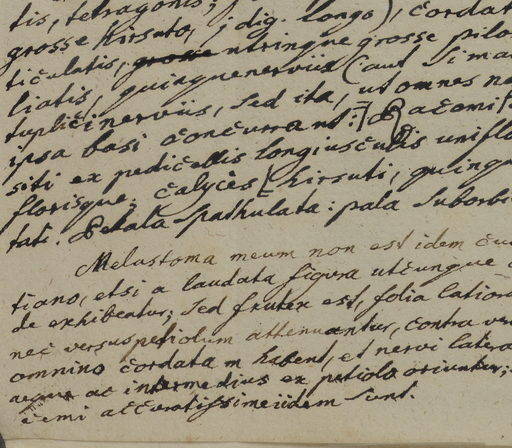 tis, tetragonis;
grosse hirsuto, j dig. longo), cordat
ticulatis, grosse utrinque grosse pilo
liatis, quinquenerviis (aut si ma
tuplicinerviis, sed ita, ut omnes ne
ipsa basi concurrant:
siti ex pedicellis longiusculis uniflo
florisque, calyces hirsuti, quinqu
tati. Petala spathulata: pala suborbi
Melastoma meum non est idem cu
tiano, etsi a laudata figura utcunque
de exhibeatur; sed frutex est, folia latiora
nec versus petiolum attenuantur, contra ve
omnino cordatam habent, et nervi latera
aeque ac intermedius ex petiolo oriuntur;
cemi accuratissime iidem sunt.